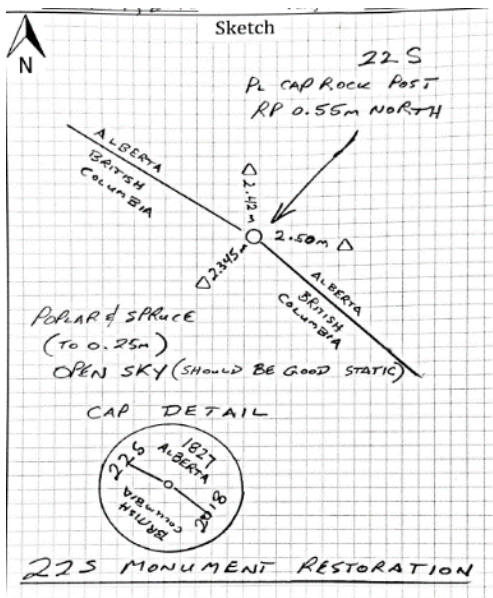 Sketch
N
22 S
PL CAP ROCK POST
RP 0.55m NORTH
ALBERTA
BRITISH
COLUMBIA
2.42m
2.50m
2.345m
ALBERTA
BRITISH
COLUMBIA
POPLAR & SPRUCE
(TO 0.25m)
OPEN SKY (SHOULD BE GOOD STATIC)
CAP DETAIL
22S
1827
ALBERTA
2018
BRITISH
COLUMBIA
22S MONUMENT RESTORATION